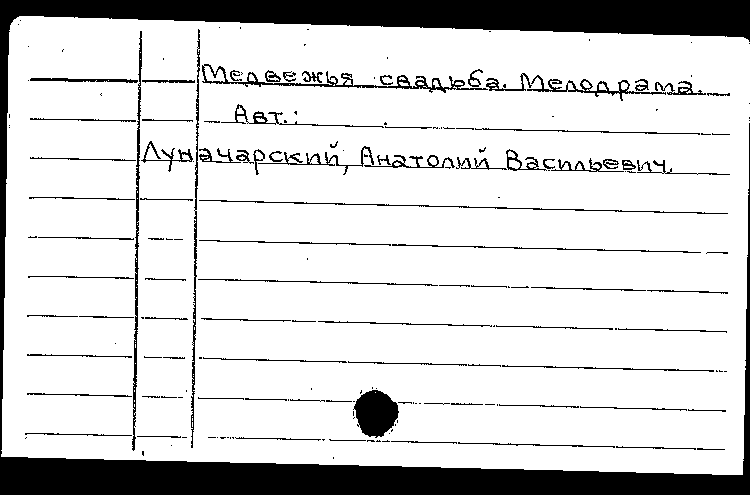 Медвежья свадьба. Мелодрама.
Авт.:
Луначарский, Анатолий Васильевич.